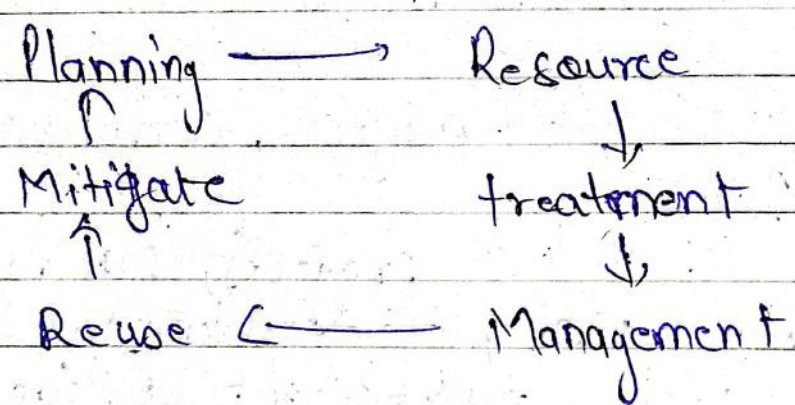 Planning → Resource
Mitigate treatment
Reuse ← Management